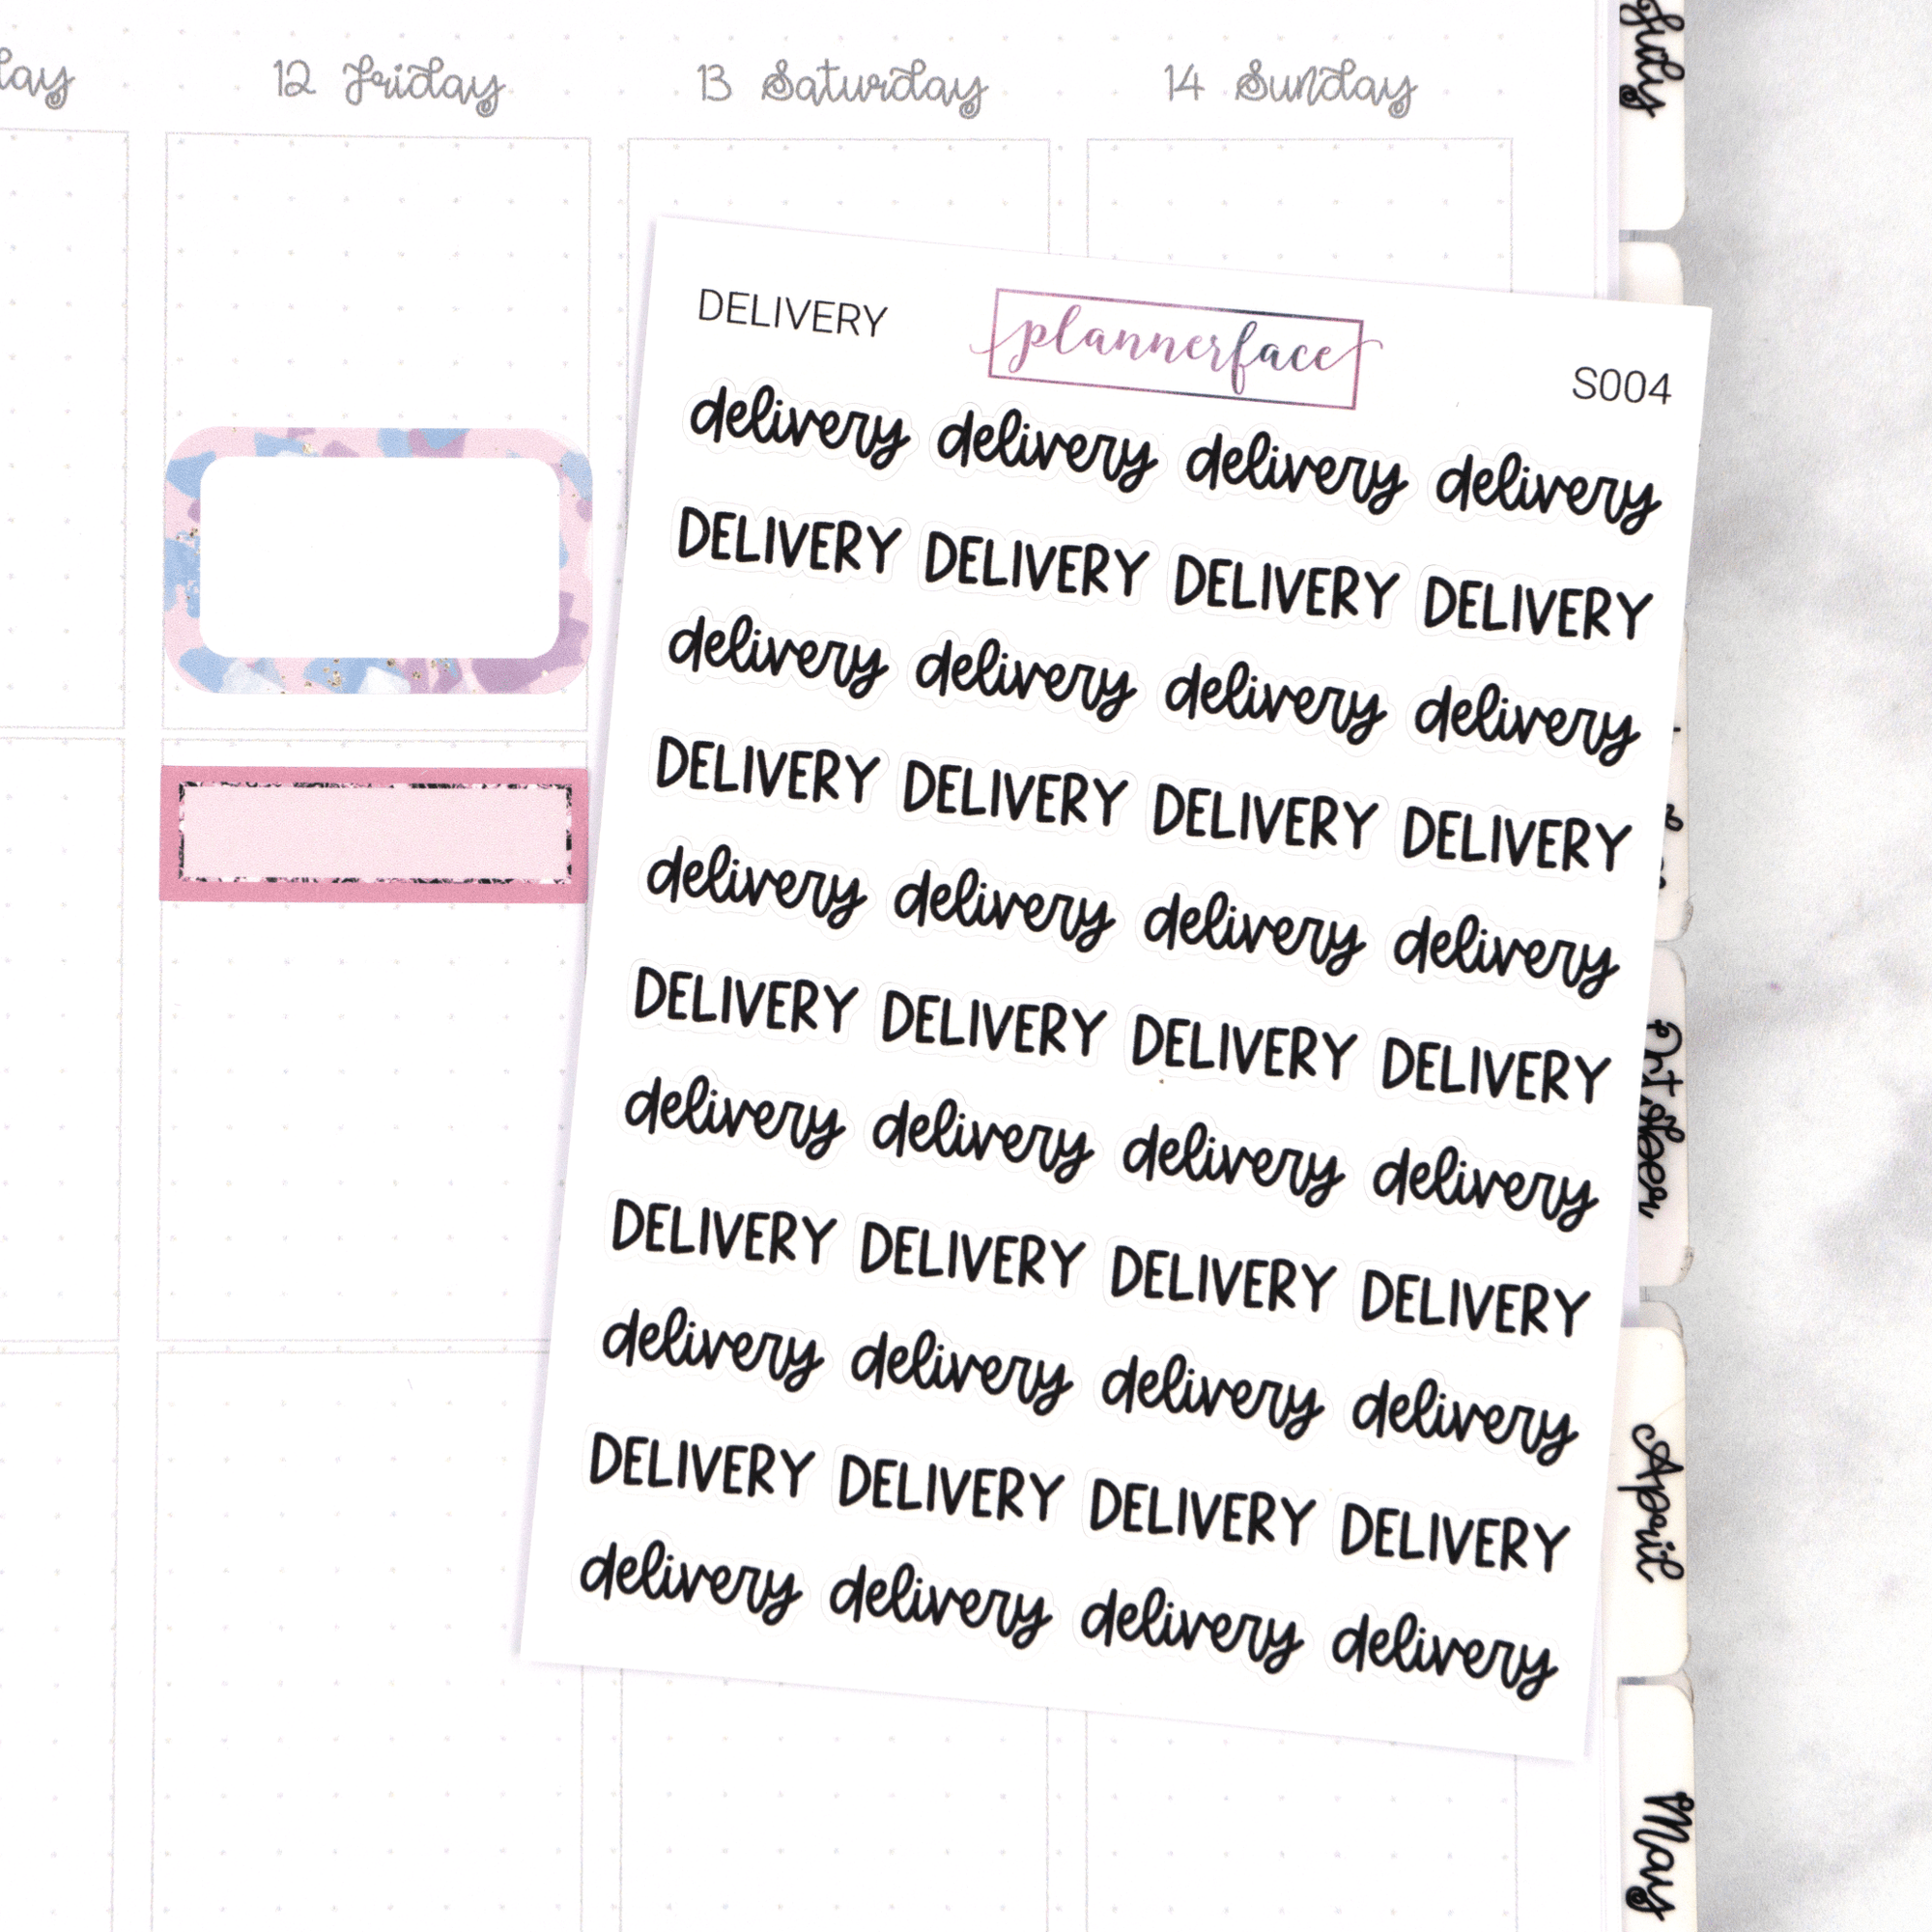 12 Friday 13 Saturday 14 Sunday
July
DELIVERY plannerface S004
delivery delivery delivery delivery
DELIVERY DELIVERY DELIVERY DELIVERY
delivery delivery delivery delivery
DELIVERY DELIVERY DELIVERY DELIVERY
delivery delivery delivery delivery
DELIVERY DELIVERY DELIVERY DELIVERY
delivery delivery delivery delivery
DELIVERY DELIVERY DELIVERY DELIVERY
delivery delivery delivery delivery
DELIVERY DELIVERY DELIVERY DELIVERY
delivery delivery delivery delivery
April
May